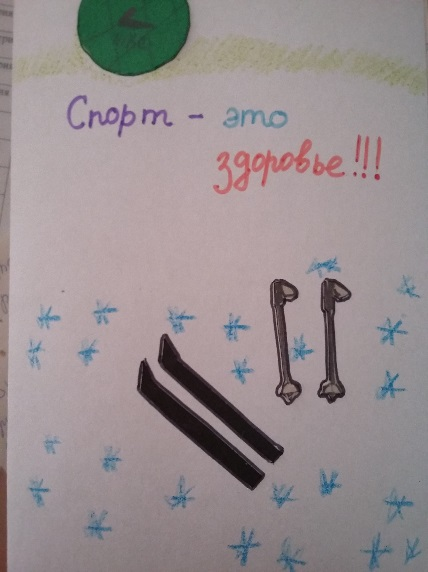 Спорт - это
здоровье!!!